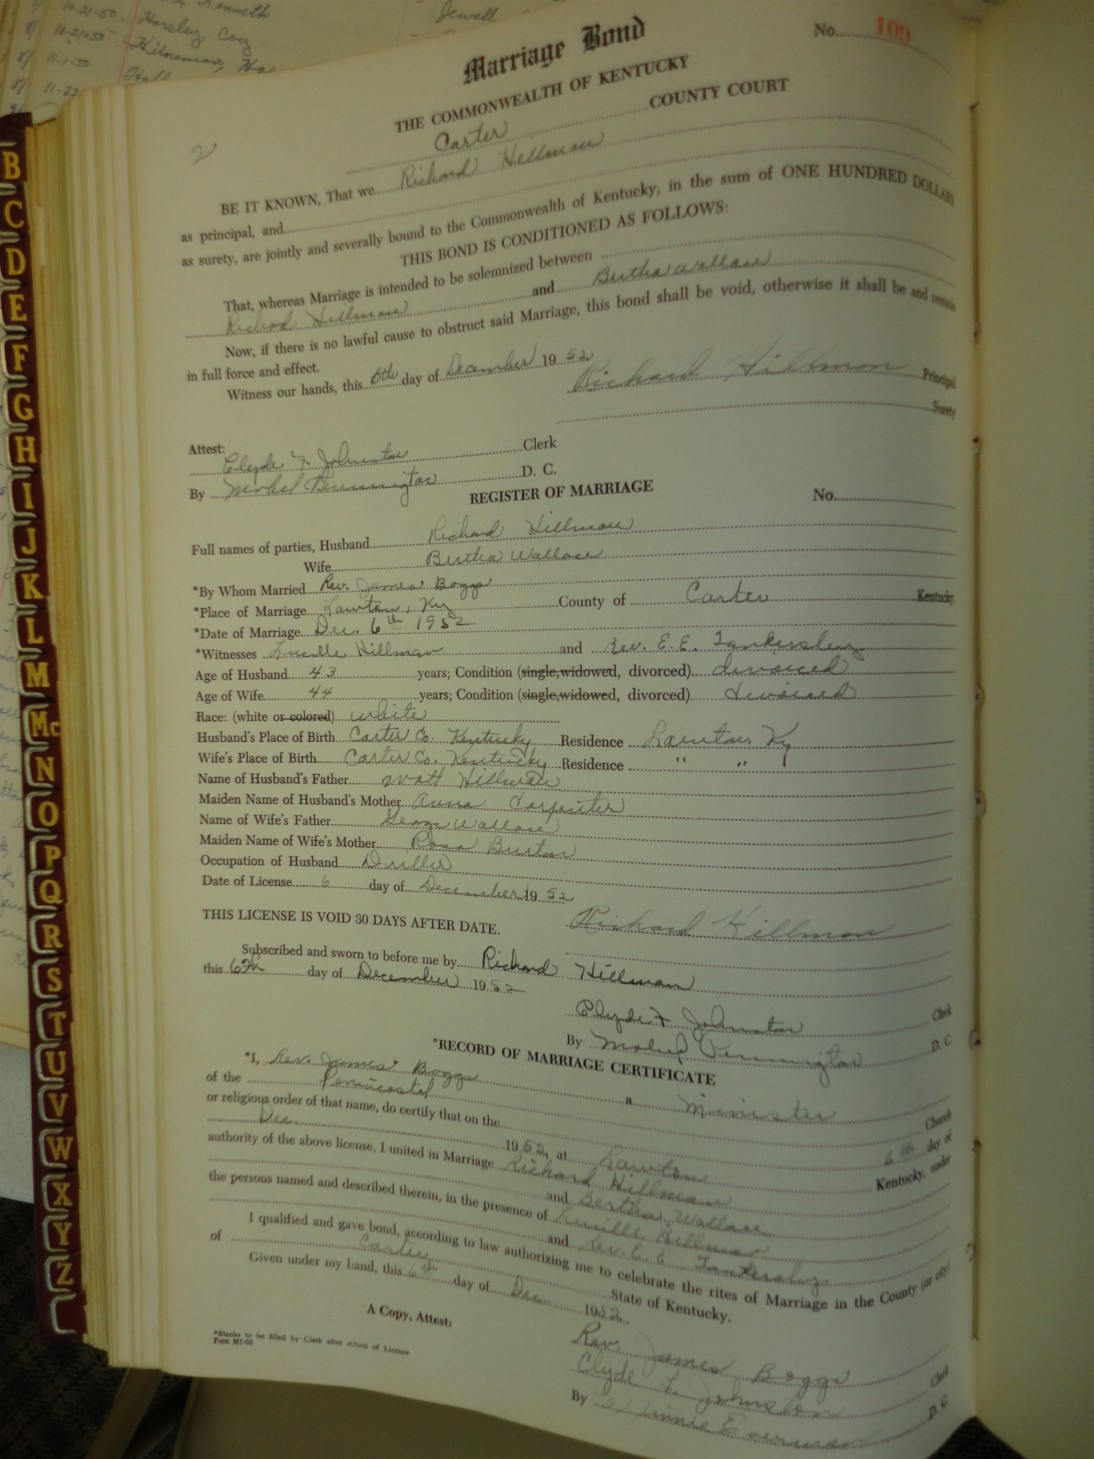 10-21-50 - Horsley, Coy
11-1-50
Hall
11-22
Jewell
Kenneth
B
C
D
E
F
G
H
I
J
K
L
M
Mc
N
O
P
Q
R
S
T
U
V
W
X
Y
Z
No. 109
Marriage Bond
THE COMMONWEALTH OF KENTUCKY
Carter COUNTY COURT
2
BE IT KNOWN, That we Richard Hillman
as principal, and
as surety, are jointly and severally bound to the Commonwealth of Kentucky, in the sum of ONE HUNDRED DOLLARS
THIS BOND IS CONDITIONED AS FOLLOWS:
That, whereas Marriage is intended to be solemnized between
Richard Hillman and Bertha Wallace
Now, if there is no lawful cause to obstruct said Marriage, this bond shall be void, otherwise it shall be and remain
in full force and effect.
Witness our hands, this 6th day of December 1952
Richard Hillman Principal
Surety
Attest:
Clyde F Johnston Clerk
By Mabel Pennington D. C.
REGISTER OF MARRIAGE No.
Full names of parties, Husband Richard Hillman
Wife Bertha Wallace
*By Whom Married Rev. James Boggs
*Place of Marriage Lawton, Ky County of Carter Kentucky
*Date of Marriage Dec. 6th 1952
*Witnesses Lucille Hillman and Rev. E. E. Tankersley
Age of Husband 43 years; Condition (single, widowed, divorced) divorced
Age of Wife 44 years; Condition (single, widowed, divorced) divorced
Race: (white or colored) white
Husband's Place of Birth Carter Co. Kentucky Residence Lawton, Ky
Wife's Place of Birth Carter Co. Kentucky Residence " " "
Name of Husband's Father Watt Hillman
Maiden Name of Husband's Mother Anna Carpenter
Name of Wife's Father George Wallace
Maiden Name of Wife's Mother Rosa Burton
Occupation of Husband Driller
Date of License 6 day of December 1952
THIS LICENSE IS VOID 30 DAYS AFTER DATE. Richard Hillman
Subscribed and sworn to before me by Richard Hillman
this 6th day of December 1952
Clyde F Johnston Clerk
By Mabel Pennington D. C
*RECORD OF MARRIAGE CERTIFICATE
*I, Rev. James Boggs a Minister
of the Penticostel Church
or religious order of that name, do certify that on the 6th day of
Dec. 1952, at Lawton Kentucky, under
authority of the above license, I united in Marriage Richard Hillman
and Bertha Wallace
the persons named and described therein, in the presence of Lucille Hillman
and Rev. E. E Tankersley
I qualified and gave bond, according to law authorizing me to celebrate the rites of Marriage in the County (or city)
of Carter State of Kentucky.
Given under my hand, this 6th day of Dec. 1952.
Rev. James Boggs
A Copy, Attest: Clyde F. Johnston Clerk
By Minnie Everman D. C
*Blanks to be filled by Clerk after return of License